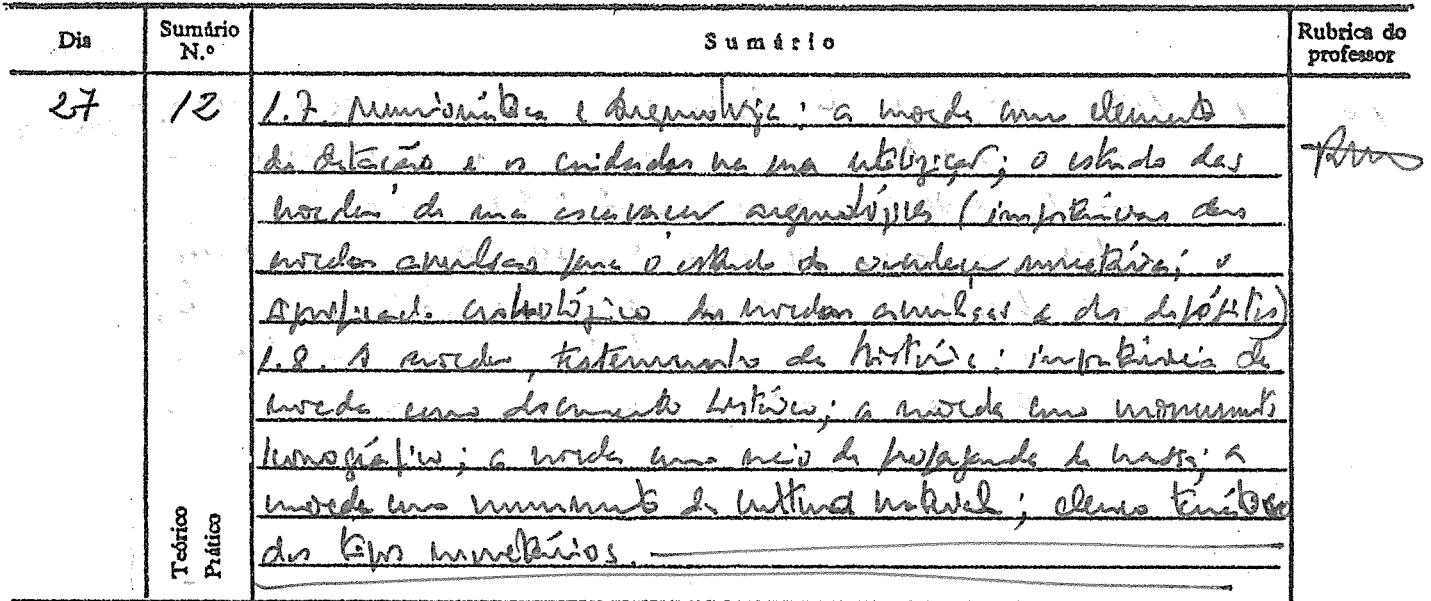 Dia
Sumário N.º
Sumário
Rubrica do professor
27
12
1.7. Numismática e Arqueologia: a moeda como elemento
de datação e os cuidados na sua utilização; o estudo das
moedas de uma escavação arqueológica (importância das
moedas avulsas para o estudo da circulação monetária; o
significado cronológico das moedas avulsas e dos depósitos)
1.8. A moeda, testemunho da história: importância da
moeda como documento histórico; a moeda como monumento
iconográfico; a moeda como meio de propaganda de massa; a
moeda como monumento da cultura material; elenco temático
dos tipos monetários.
Teórico
Prático